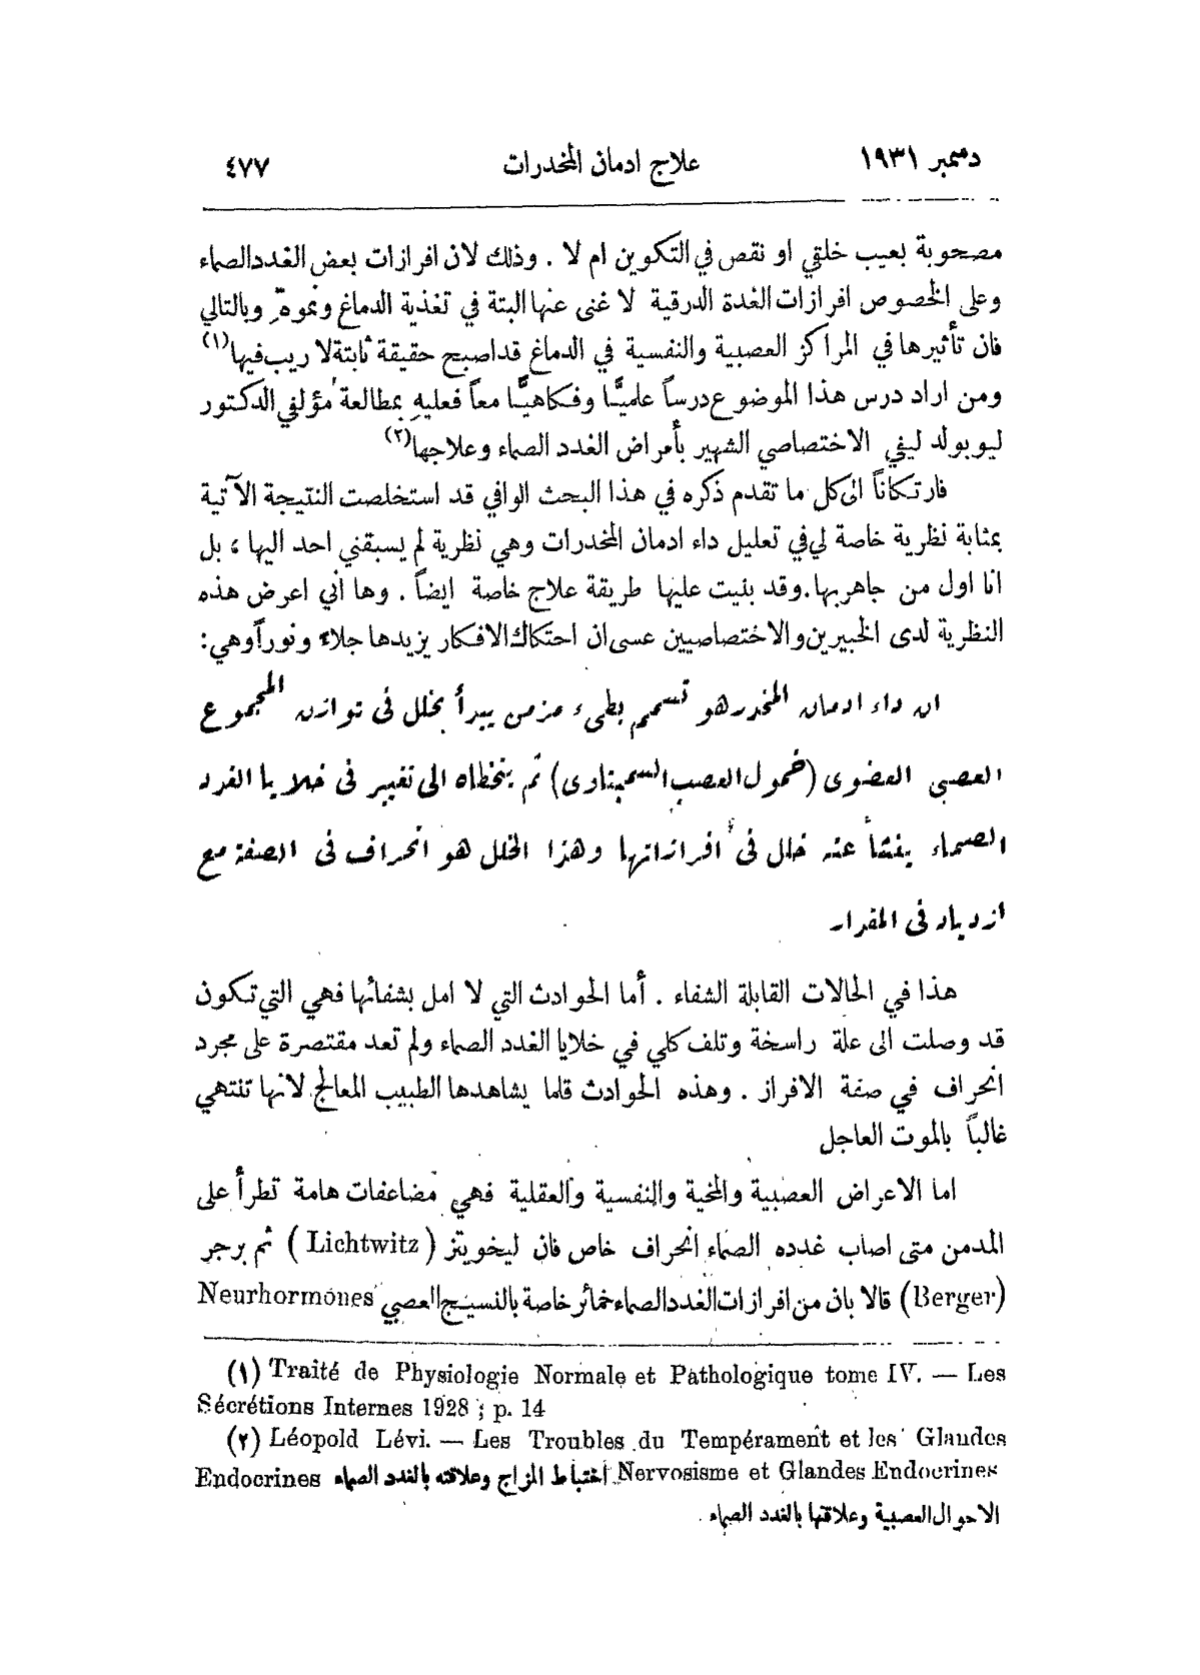 دسمبر ١٩٣١ علاج ادمان المخدرات ٤٧٧
مصحوبة بعيب خلقي او نقص في التكوين ام لا . وذلك لان افرازات بعض الغدد الصماء
وعلى الخصوص افرازات الغدة الدرقية لا غنى عنها البتة في تغذية الدماغ ونموهِ وبالتالي
فان تأثيرها في المراكز العصبية والنفسية في الدماغ قد اصبح حقيقة ثابتة لا ريب فيها (١)
ومن اراد درس هذا الموضوع درساً علميًّا وفكاهيًّا معاً فعليهِ بمطالعة مؤلفي الدكتور
ليوبولد ليفي الاختصاصي الشهير بأمراض الغدد الصماء وعلاجها (٢)
فارتكاناً الى كل ما تقدم ذكره في هذا البحث الوافي قد استخلصت النتيجة الآتية
بمثابة نظرية خاصة لي في تعليل داء ادمان المخدرات وهي نظرية لم يسبقني احد اليها ، بل
انا اول من جاهر بها . وقد بنيت عليها طريقة علاج خاصة ايضاً . وها أني اعرض هذه
النظرية لدى الخبيرين والاختصاصيين عسى ان احتكاك الافكار يزيدها جلاء ونوراً وهي :
ان داء ادمان المخدر هو تسمم بطيء مزمن يبدأ بخلل في توازن المجموع
العصبي العضوي (خمول العصب السمبتاوي) ثم يتخطاه الى تغيير في خلايا الغدد
الصماء ينشأ عنه خلل في افرازاتها وهذا الخلل هو انحراف في الصفة مع
ازدياد في المقدار
هذا في الحالات القابلة الشفاء . أما الحوادث التي لا امل بشفائها فهي التي تكون
قد وصلت الى علة راسخة وتلف كلي في خلايا الغدد الصماء ولم تعد مقتصرة على مجرد
انحراف في صفة الافراز . وهذه الحوادث قلما يشاهدها الطبيب المعالج لانها تنتهي
غالباً بالموت العاجل
اما الاعراض العصبية والمخية والنفسية والعقلية فهي مضاعفات هامة تطرأ على
المدمن متى اصاب غدده الصماء انحراف خاص فان ليخويتز ( Lichtwitz ) ثم برجر
(Berger) قالا بان من افرازات الغدد الصماء خمائر خاصة بالنسيج العصبي Neurhormónes
(١) Traité de Physiologie Normale et Pathologique tome IV. — Les
Sécrétions Internes 1928 ; p. 14
(٢) Léopold Lévi. — Les Troubles du Tempérament et les Glandes
Endocrines اختباط المزاج وعلاقته بالغدد الصماء Nervosisme et Glandes Endocrines
الاحوال العصبية وعلاقتها بالغدد الصماء .